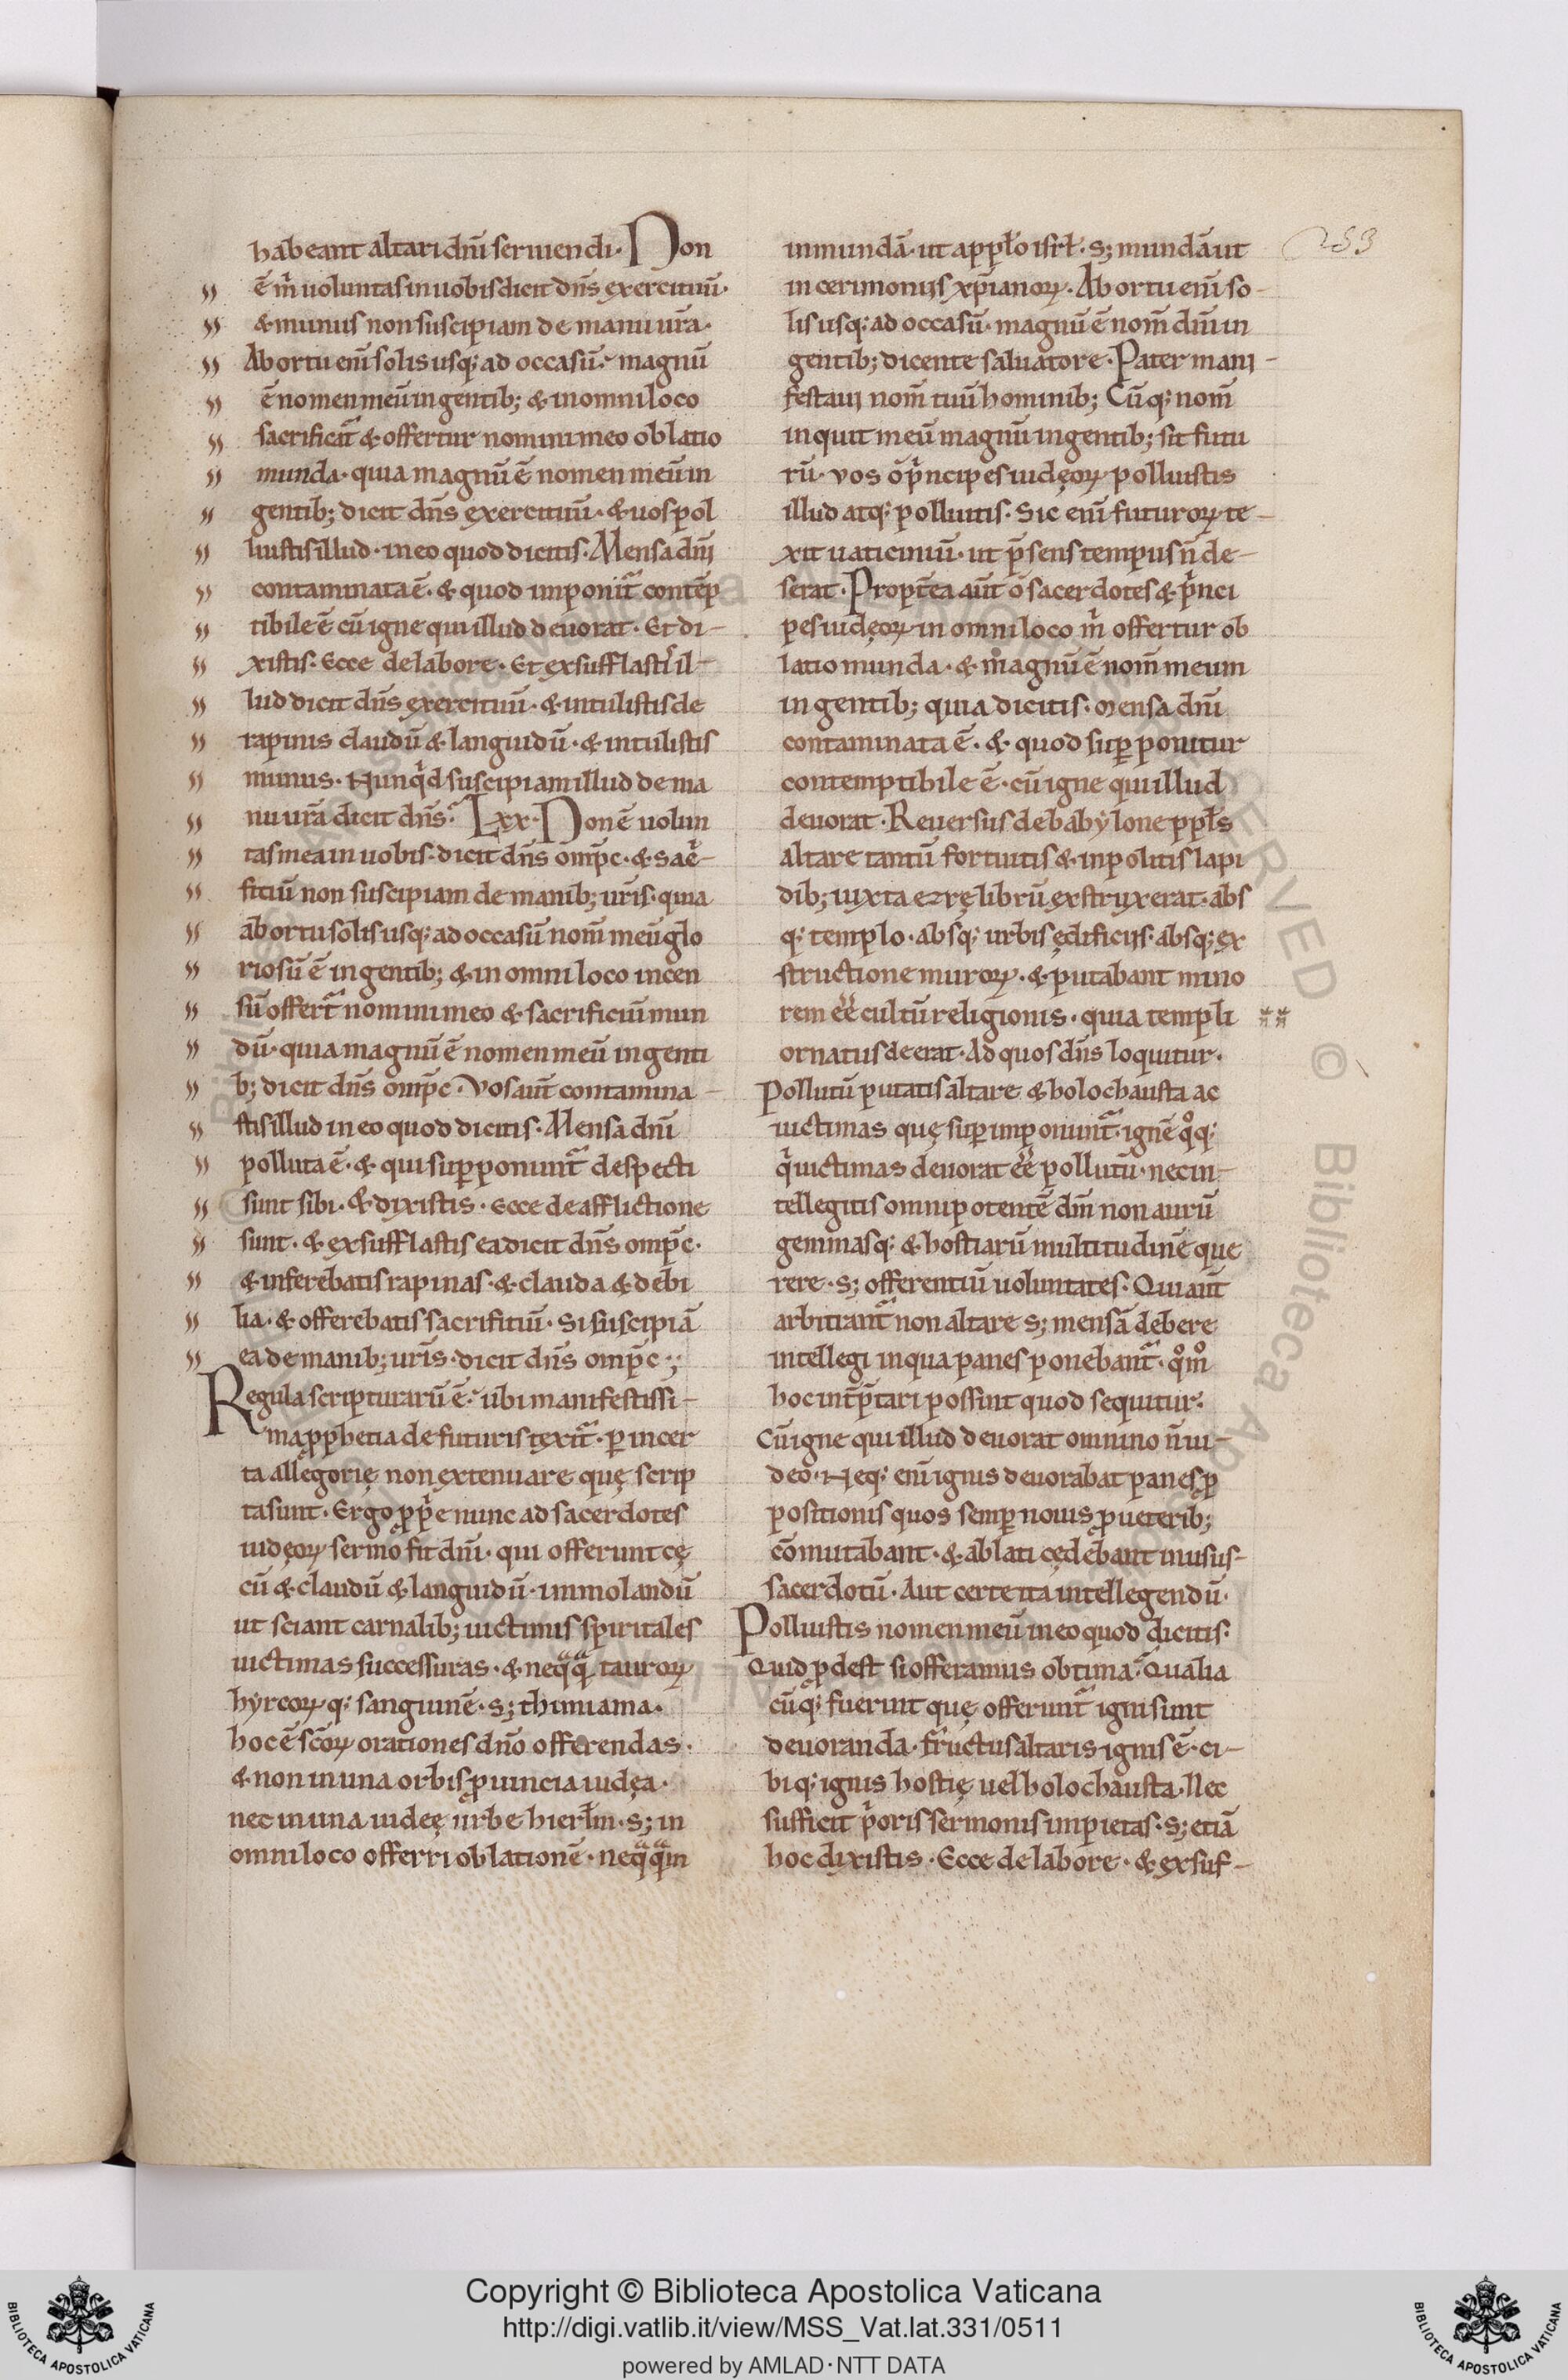 habeant altari dnī seruiendi. Non
ē m̄ uoluntas in uobis dicit dn̄s exercituū.
& munus non suscipiam de manu ura̅.
Ab ortu enī solis usq; ad occasū. magnū
ē nomen meū in gentib; & in omni loco
sacrificat̄ & offertur nomini meo oblatio
munda. quia magnū ē nomen meū in
gentib; dicit dn̄s exercituū. & uos pol
luistis illud. in eo quod dicitis. Mensa dnī
contaminata ē. & quod imponit̄ contēp
tibile ē cū igne qui illud deuorat. Et di-
xistis. Ecce de labore. Et exsufflastis il-
lud dicit dn̄s exercituū. & intulistis de
rapinis claudū & languidū. & intulistis
munus. Nunqd̄ suscipiam illud de ma
nu ura̅ dicit dn̄s. Lxx. Non ē uolun
tas mea in uobis. dicit dn̄s omp̄c. & sac̄-
fitiū non suscipiam de manib; uris̄. quia
ab ortu solis usq; ad occasū nom̄ meū glo
riosū ē in gentib; & in omni loco incen
sū offert̄ nomini meo & sacrificiū mun
dū. quia magnū ē nomen meū in genti
b; dicit dn̄s omp̄c. Vos aut̄ contamina-
stis illud in eo quod dicitis. Mensa dnī
polluta ē. & qui supponunt̄ despecti
sunt sibi. & dixistis. Ecce de afflictione
sunt. & exsufflastis ea dicit dn̄s omp̄c.
& inferebatis rapinas. & clauda & debi
lia. & offerebatis sacrifitiū. Si suscipiā
ea de manib; uris̄. dicit dn̄s omp̄c.;
Regula scripturarū ē. ubi manifestissi-
ma pp̄hetia de futuris texit̄. p̱ incer
ta allegorię non extenuare quę scrip
ta sunt. Ergo pp̄e nunc ad sacerdotes
iudęoꝝ sermo fit dnī. qui offerunt cę
cū & claudū & languidū. immolandū
ut sciant carnalib; uictimis spiritales
uictimas successuras. & neqq̄ tauroꝝ
hyrcoꝝ q; sanguinē. s; thimiama.
hoc ē sc̄oꝝ orationes dn̄o offerendas.
& non in una orbis ꝓuincia iudęa.
nec in una iudeę urbe hierłm. s; in
omni loco offerri oblationē. neqq̄m
inmundā. ut a ppło isrł. s; mundā ut
in cerimoniis xp̄ianoꝝ. Ab ortu enī so-
lis usq; ad occasū. magnū ē nom̄ dnī in
gentib; dicente saluatore. Pater mani-
festaui nom̄ tuū hominib; Cū q; nom̄
inquit meū magnū in gentib; sit futu
rū. vos o p̄ncipes iudęoꝝ polluistis
illud atq; polluitis. Sic enī futuroꝝ te-
xit uaticiniū. ut p̄sens tempus n̄ de-
serat. Propt̄ea aut̄ o sacerdotes & p̄nci
pes iudęoꝝ in omni loco m̄ offertur ob
latio munda. & magnū ē nom̄ meum
in gentib; quia dicitis. Mensa dnī
contaminata ē. & quod suꝑponitur
contemptibile ē. cū igne qui illud
deuorat. Reuersus de babylone ppłs
altare tantū fortuitis & inpolitis lapi
dib; iuxta ezrę librū exstruxerat. abs
q; templo. absq; urbis ędificiis. absq; ex
structione muroꝝ. & putabant mino
rem eē̄ cultū religionis. quia templi
ornatus deerat. Ad quos dn̄s loquitur.
Pollutū putatis altare & holochausta ac
uictimas quę suꝑimponunt̄. ignē qq;
q̄ uictimas deuorat eē̄ pollutū. nec in-
tellegitis omnipotentē dm̄ non aurū
gemmasq; & hostiarū multitudinē que
rere. s; offerentiū uoluntates. Qui aut̄
arbitrant̄ non altare s; mensā debere
intellegi in qua panes ponebant̄. qm̊̊
hoc int̄p̄tari possint quod sequitur.
Cū igne qui illud deuorat omnino n̄ ui-
deo. Neq; enī ignis deuorabat panes ꝓ
positionis quos semꝑ nouis ꝓ ueterib;
cōmutabant. & ablati cędebant in usus-
sacerdotū. Aut certe ita intellegendū.
Polluistis nomen meū in eo quod dicitis.
Quid ꝓdest si offeramus obtima. Qualia
cūq; fuerint quę offerunt̄ igni sunt
deuoranda. fructus altaris ignis ē. ci-
bi q; ignis hostię uel holochausta. Nec
sufficit p̄oris sermonis impietas. s; etiā
hoc dixistis. Ecce de labore. & exsuf-
253
Copyright © Biblioteca Apostolica Vaticana
http://digi.vatlib.it/view/MSS_Vat.lat.331/0511
powered by AMLAD·NTT DATA
BIBLIOTECA APOSTOLICA VATICANA
BIBLIOTECA APOSTOLICA VATICANA